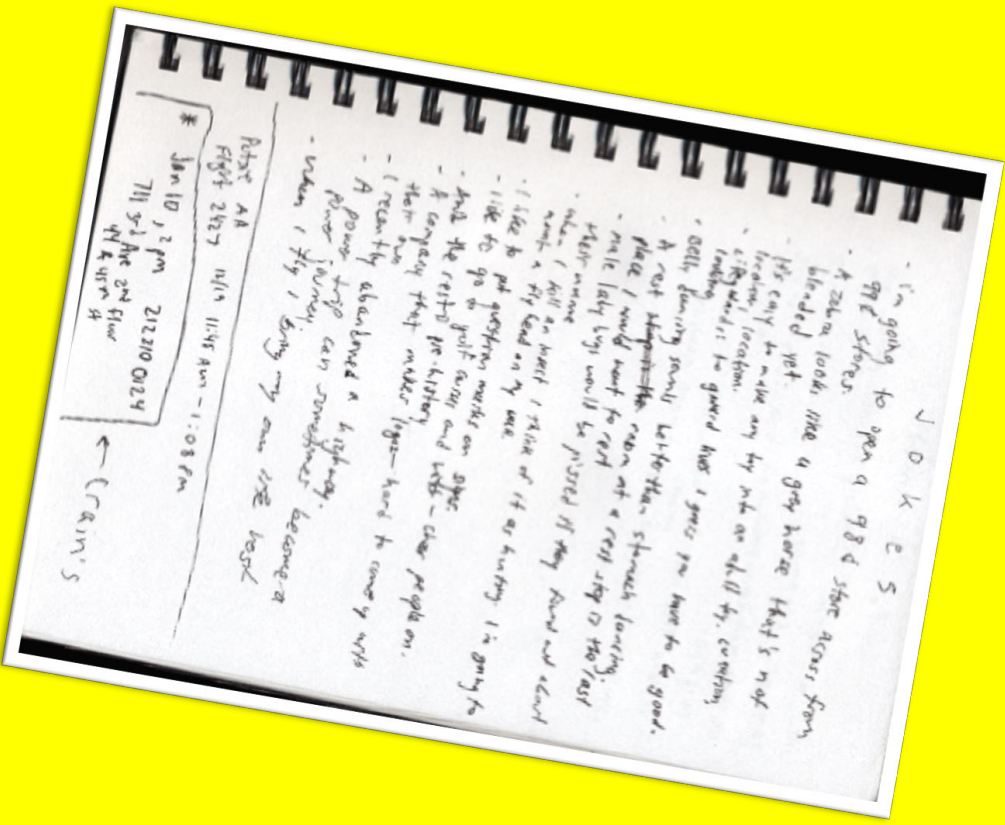 JOKES
- I'm going to open a 98¢ store across from
99¢ stores.
- A zebra looks like a gray horse that's not
blended yet.
- It's easy to make any toy into an adult toy. Location,
location, location.
- lifeguards: to guard lives I guess you have to be good.
- Belly dancing sounds better than stomach dancing.
- A rest room at a rest stop is the last
place I would want to rest
- male lady bugs would be pissed if they found out about
their name
- when I kill an insect I think of it as hunting. I'm going to
mount a fly head on my wall.
- I like to put question marks on signs.
- I like to go to golf courses and cheer people on.
- And the rest is pre-history
- A company that makes logos - hard to come up with
their own
- I recently abandoned a highway.
- A power trip can sometimes become a
power journey.
- when I fly I bring my own seat
AA
Flight 2427 11:45 Am - 1:08 pm
* Jan 10, 2 pm 2122100124
711 3rd Ave 2nd Floor
44 & 45th St
← Crain's